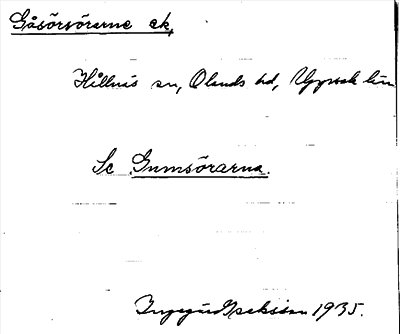 Gåsörsörarna ek,
Hållnäs sn, Olands hd, Uppsala län
Se Gumsörarna.
Ingegärd 1935.